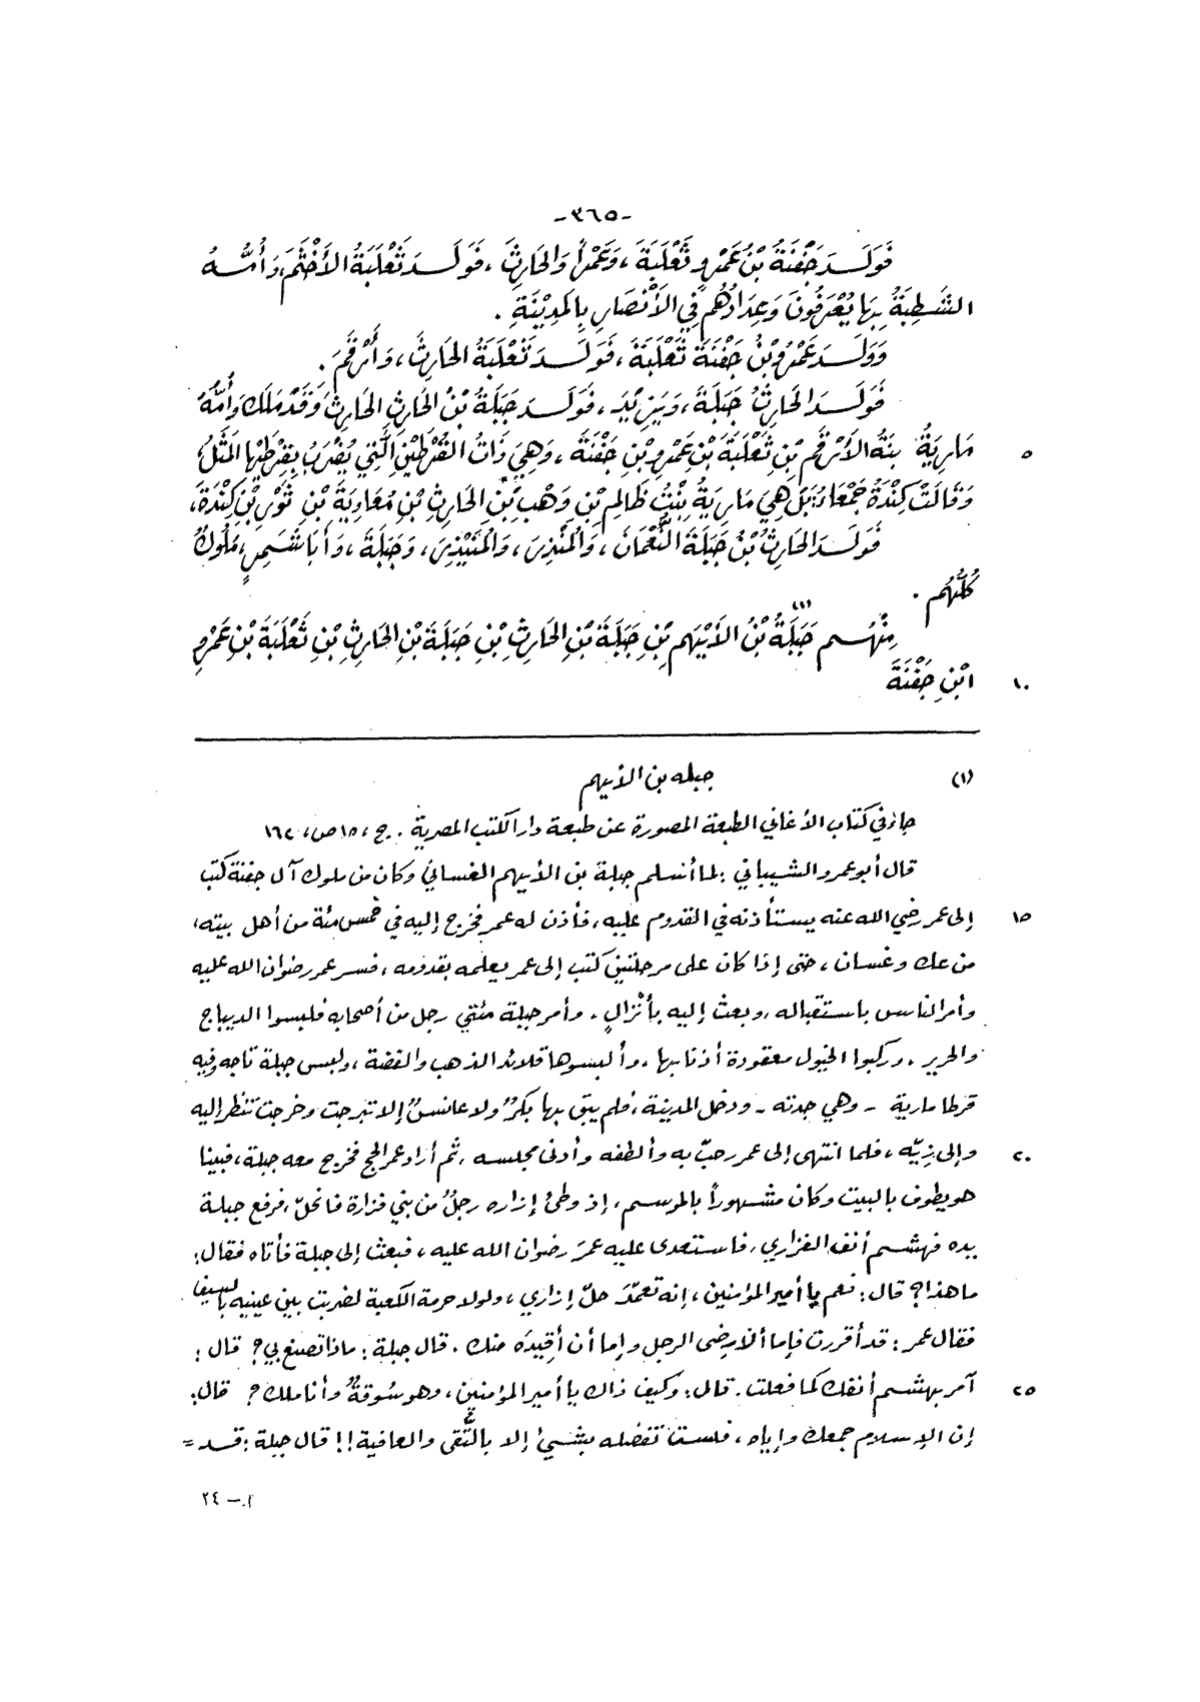 -٣٦٥-
فَوَلَـدَ جَفْنَةُ بْنُ عَمْرٍو ثَعْلَبَةَ، وَعَمْراً وَالحَارِثَ، فَوَلَـدَ ثَعْلَبَةُ الأَخْثَمَ، وَأُمُّـهُ
الشَّطِبَةُ بِهَا يُعْرَفُونَ وَعِدَادُهُم فِي الأَنْصَارِ بِالمَدِيْنَةِ .
وَوَلَـدَ عَمْرُو بْنُ جَفْنَةَ ثَعْلَبَةَ، فَوَلَـدَ ثَعْلَبَةُ الحَارِثَ، وَأَرْقَمَ .
فَوَلَـدَ الحَارِثُ جَبَلَةَ، وَيَزِيْدَ، فَوَلَـدَ جَبَلَةُ بْنُ الحَارِثِ الحَارِثَ وَقَدْ مَلَكَ وَأُمُّهُ
مَارِيَةُ بِنَةُ الأَرْقَمِ بْنِ ثَعْلَبَةَ بْنِ عَمْرِو بْنِ جَفْنَةَ، وَهِيَ ذَاتُ القُرْطَيْنِ الَّتِي يُضْرَبُ بِقِرْطَيْهَا المَثَلُ، ٥
وَقَالَتْ كِنْدَةُ جَمْعَاءُ: بَلْ هِيَ مَارِيَةُ بِنْتُ ظَالِمِ بْنِ وَهْبِ بْنِ الحَارِثِ بْنِ مُعَاوِيَةَ بْنِ ثَوْرِ بْنِ كِنْدَةَ،
فَوَلَـدَ الحَارِثُ بْنُ جَبَلَةَ النُّعْمَانَ، وَالمُنْذِرَ، وَالمُنَيْذِرَ، وَجَبَلَةَ، وَأَبَا شَمِرٍ، مُلُوكٌ
كُلُّهُم .
مِنْهُـم جَبَلَةُ(١) بْنُ الأَيْهَمِ بْنِ جَبَلَةَ بْنِ الحَارِثِ بْنِ جَبَلَةَ بْنِ الحَارِثِ بْنِ ثَعْلَبَةَ بْنِ عَمْرِو
ابْنِ جَفْنَةَ ١٠
(١) جبله بن الأيهم
جاء في كتاب الأغاني الطبعة المصورة عن طبعة دار الكتب المصرية . ج، ١٥ ص، ١٦٢
قال أبو عمرو الشيباني : لما أسلم جبلة بن الأيهم الغساني وكان من ملوك آل جفنة كتب
إلى عمر رضي الله عنه يستأذنه في القدوم عليه، فأذن له عمر فخرج إليه في خمس مئة من أهل بيته، ١٥
من عك وغسان، حتى إذا كان على مرحلتين كتب إلى عمر يعلمه بقدومه، فسر عمر رضوان الله عليه
وأمر الناس باستقباله، وبعث إليه بأنْزالٍ، وأمر جبلة مئتي رجل من أصحابه فلبسوا الديباج
والحرير، وركبوا الخيول معقودة أذنابها، وألبسوها قلائد الذهب والفضة، ولبس جبلة تاجه وفيه
قرطا مارية - وهي جدته - ودخل المدينة، فلم يبق بها بكرٌ ولا عانسٌ إلا تبرجت وخرجت تنظر إليه
وإلى زِيّه، فلما انتهى إلى عمر رحبّ به وألطفه وأدنى مجلسه، ثم أراد عمر الحج فخرج معه جبلة، فبينا ٢٠
هو يطوف بالبيت وكان مشهوراً بالموسم، إذ وطئ إزاره رجلٌ من بني فزارة فانحلّ، فرفع جبلـة
يده فهشم أنف الفزاري، فاستعدى عليه عمرَ رضوان الله عليه، فبعث إلى جبلة فأتاه فقال:
ما هذا؟ قال: نعم يا أمير المؤمنين، إنه تعمّدَ حلّ إزاري، ولولا حرمة الكعبة لضربت بين عينيه بالسيف
فقال عمر: قد أقررت فإما ألا رضى الرجل وإما أن أقِيدَه منك . قال جبلة: ماذا تصنع بي؟ قال :
آمر بهشم أنفك كما فعلت . قال: وكيف ذاك يا أمير المؤمنين، وهو سُوقةٌ وأنا ملك؟ قال: ٢٥
إن الإسلام جمعك وإياه، فلست تفضله بشيئ إلا بالتُّقى والعافية!! قال جبلة: قـد =
٢٤ - ٢.